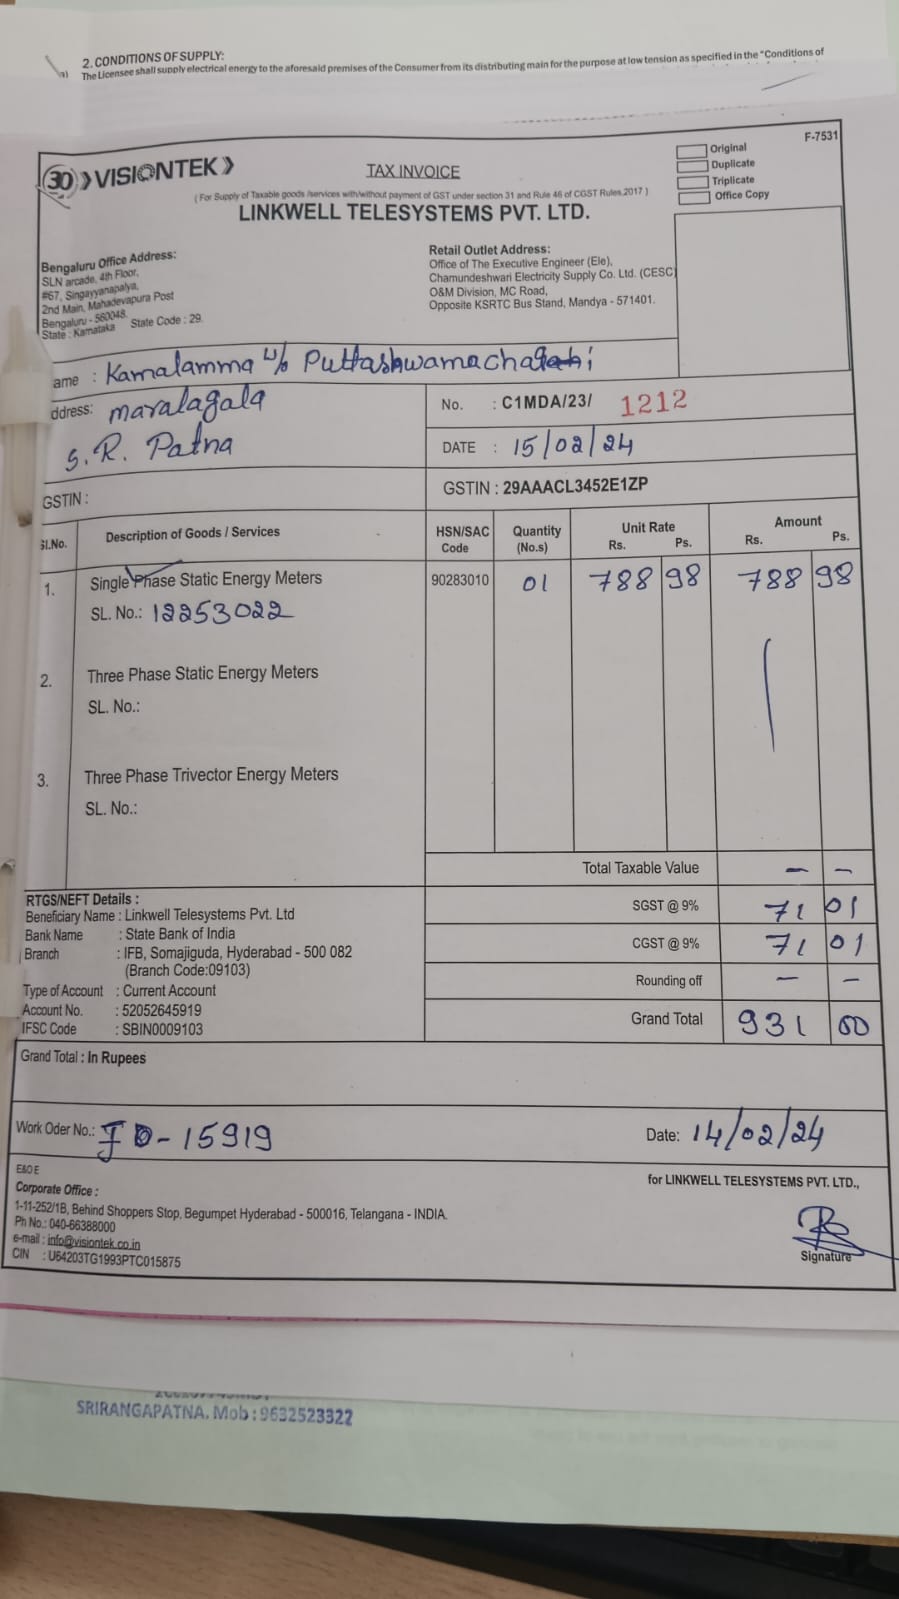 2. CONDITIONS OF SUPPLY:
a) The Licensee shall supply electrical energy to the aforesaid premises of the Consumer from its distributing main for the purpose at low tension as specified in the "Conditions of
F-7531
Original
Duplicate
Triplicate
Office Copy
30 VISIONTEK
TAX INVOICE
( For Supply of Taxable goods /services with/without payment of GST under section 31 and Rule 46 of CGST Rules,2017 )
LINKWELL TELESYSTEMS PVT. LTD.
Bengaluru Office Address:
SLN arcade, 4th Floor,
#67, Singayyanapalya,
2nd Main, Mahadevapura Post
Bengaluru - 560048.
State : Karnataka State Code : 29.
Retail Outlet Address:
Office of The Executive Engineer (Ele),
Chamundeshwari Electricity Supply Co. Ltd. (CESC)
O&M Division, MC Road,
Opposite KSRTC Bus Stand, Mandya - 571401.
ame : Kamalamma w/o
ddress: maralagala
S. R. Patna
No. : C1MDA/23/ 1212
DATE : 15/02/24
GSTIN :
GSTIN : 29AAACL3452E1ZP
Sl.No. Description of Goods / Services HSN/SAC Code Quantity (No.s) Unit Rate Rs. Ps. Amount Rs. Ps.
1. Single Phase Static Energy Meters 90283010 01 788 98 788 98
SL. No.: 12253022
2. Three Phase Static Energy Meters
SL. No.:
3. Three Phase Trivector Energy Meters
SL. No.:
Total Taxable Value - -
SGST @ 9% 71 01
CGST @ 9% 71 01
Rounding off - -
Grand Total 931 00
RTGS/NEFT Details :
Beneficiary Name : Linkwell Telesystems Pvt. Ltd
Bank Name : State Bank of India
Branch : IFB, Somajiguda, Hyderabad - 500 082
(Branch Code:09103)
Type of Account : Current Account
Account No. : 52052645919
IFSC Code : SBIN0009103
Grand Total : In Rupees
Work Oder No.: - 15919
Date: 14/02/24
E&O E
Corporate Office :
1-11-252/1B, Behind Shoppers Stop, Begumpet Hyderabad - 500016, Telangana - INDIA.
Ph No.: 040-66388000
e-mail : info@visiontek.co.in
CIN : U64203TG1993PTC015875
for LINKWELL TELESYSTEMS PVT. LTD.,
Signature
SRIRANGAPATNA. Mob : 9632523322